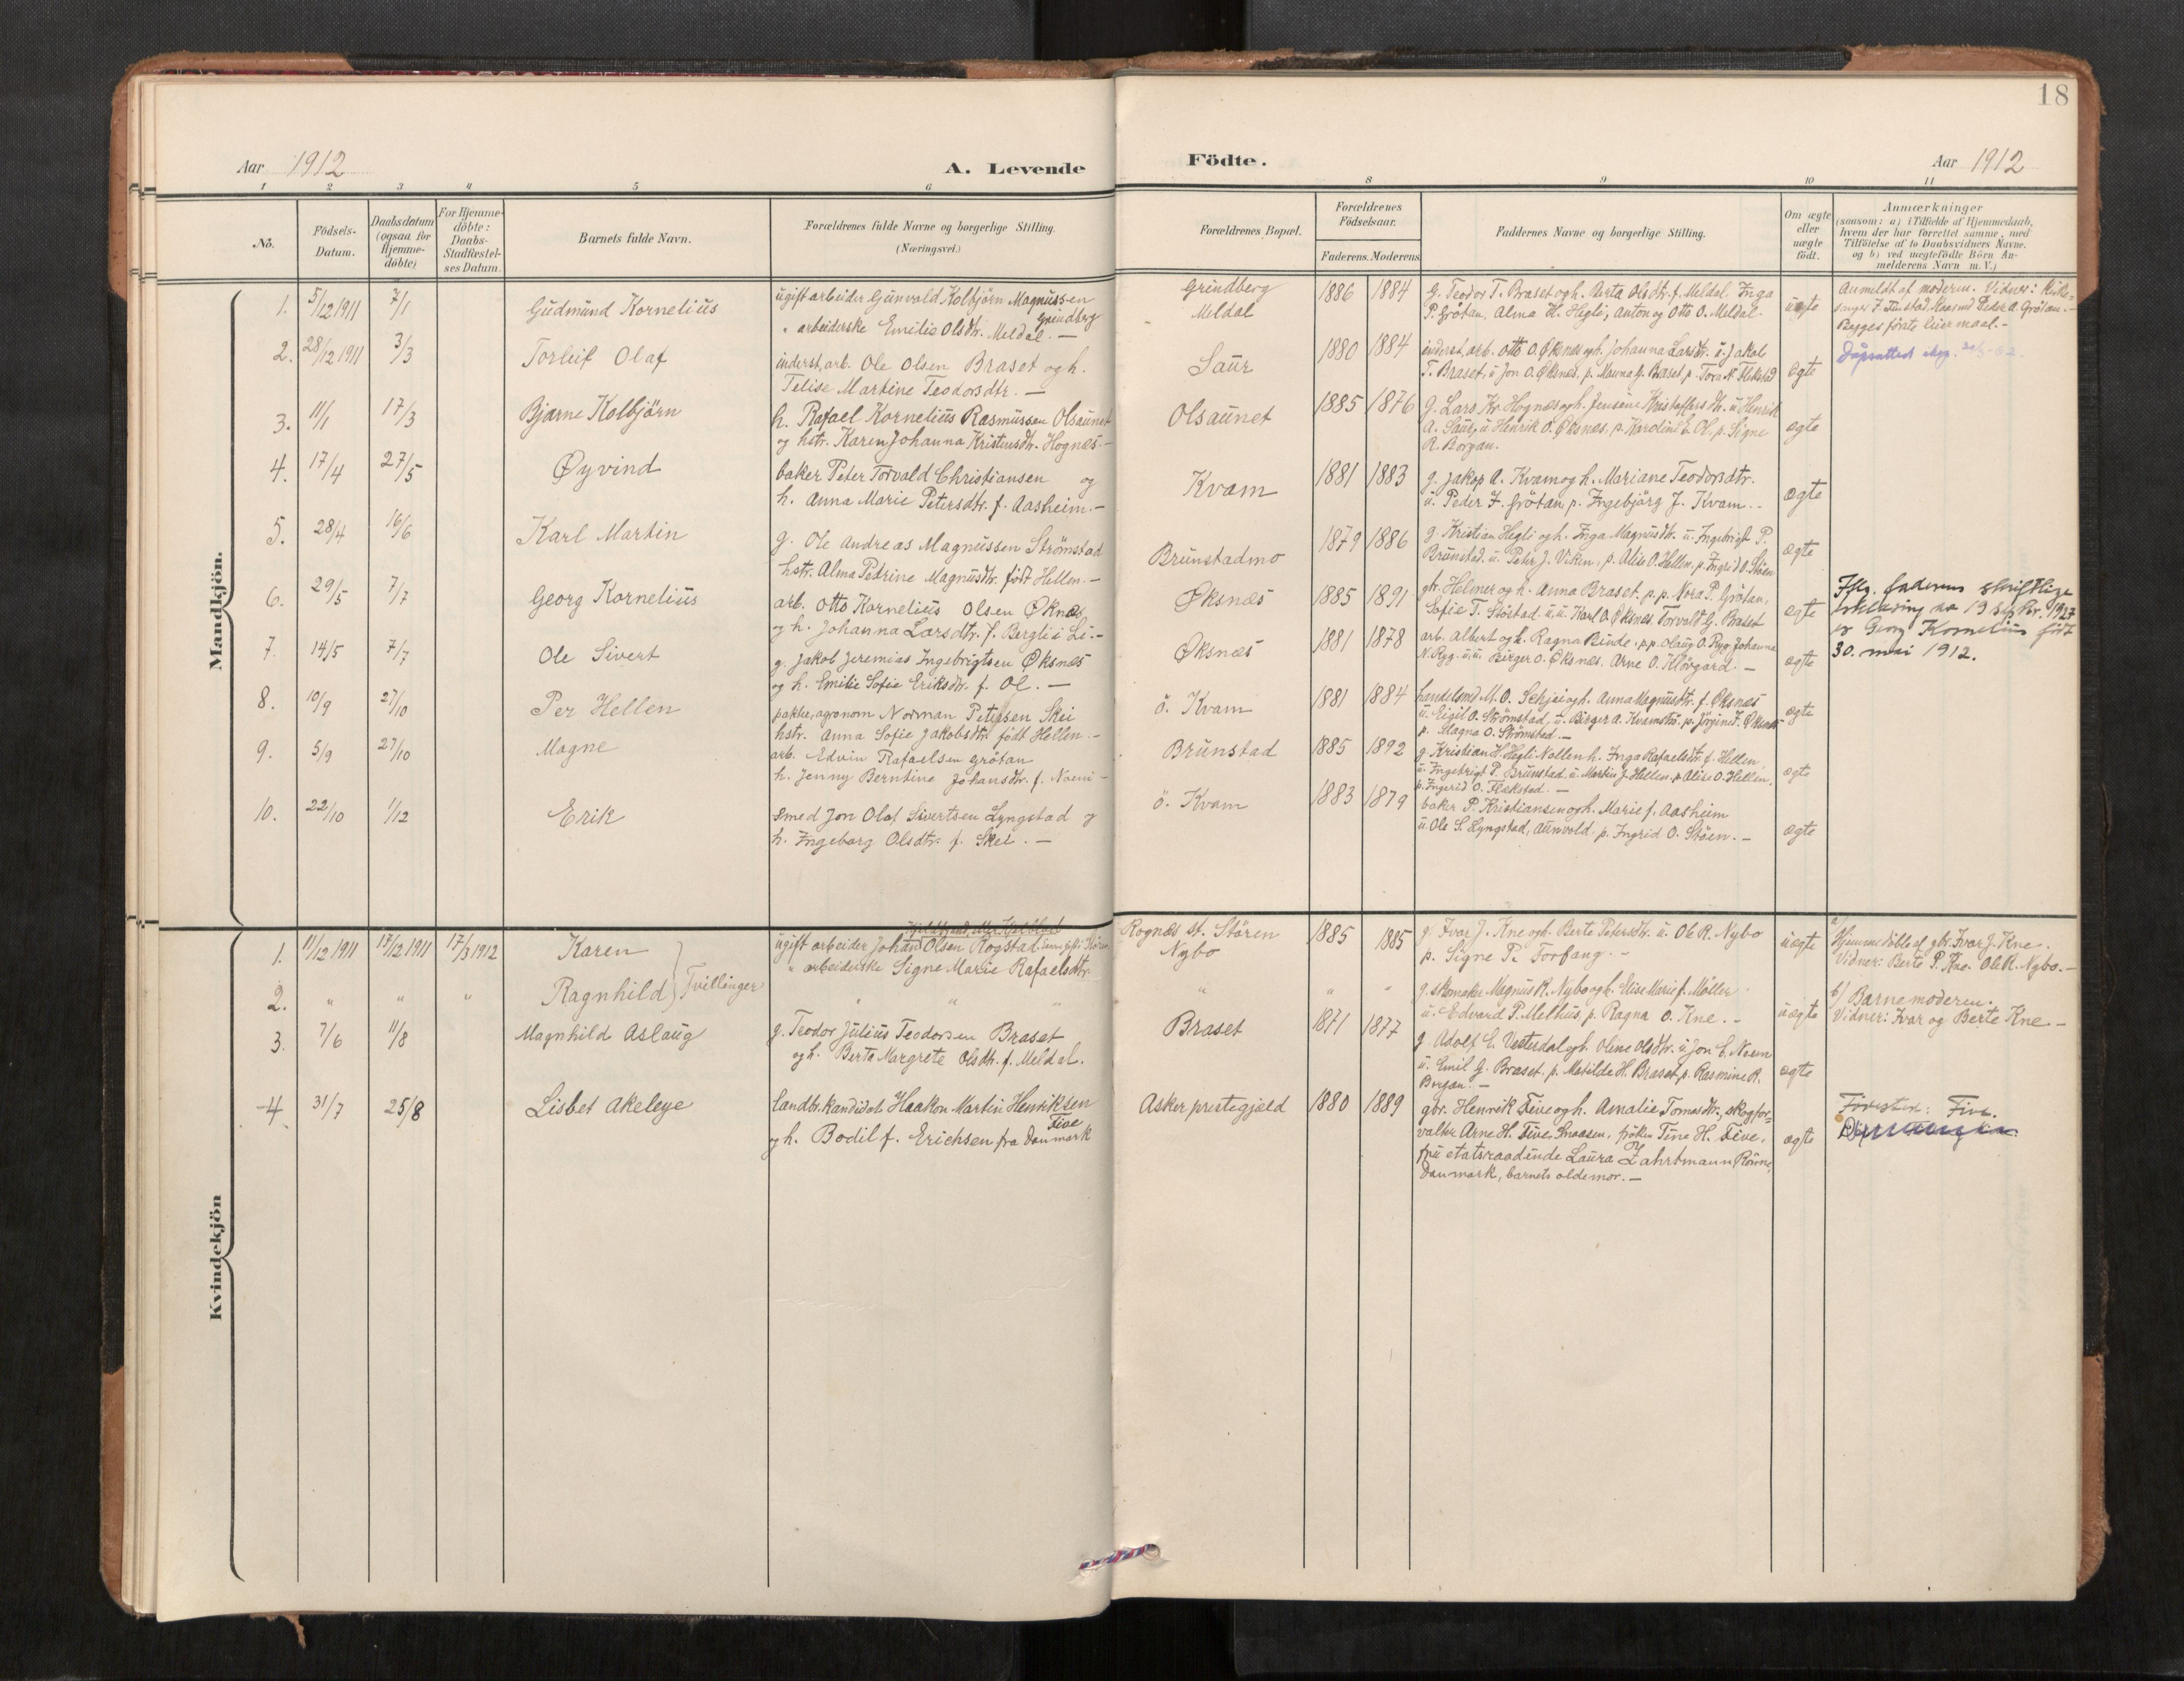 18
Aar 1912
A. Levende
Födte.
Aar 1912
1 2 3 4 5 6 8 9 10 11
No.
Födsels-
Datum.
Daabsdatum
(ogsaa for
Hjemme-
döbte)
For Hjemme-
döbte:
Daabs-
Stadfæstel-
ses Datum.
Barnets fulde Navn.
Forældrenes fulde Navne og borgerlige Stilling.
(Næringsvei.)
Forældrenes Bopæl.
Forældrenes
Födselsaar.
Faderens. Moderens.
Faddernes Navne og borgerlige Stilling.
Om ægte
eller
uægte
födt.
Anmærkninger
(saasom: a) i Tilfælde af Hjemmedaab,
hvem der har forrettet samme, med
Tilföielse af to Daabsvidners Navne.
og b) ved uægtefödte Börn An-
melderens Navn m. V.)
Mandkjön.
1. 5/12 1911 7/1 Gudmund Kornelius
ugift arbeider Gunvald Kolbjörn Magnussen
Grindberg
" arbeiderske Emilie Olsdtr. Meldal. —
Grindberg
Meldal
1886 1884
G. Teodor T. Braset og h. Berta Olsdtr. f. Meldal. Inga
P. Grötan, Alma H. Hegli, Anton og Otto O. Meldal.
uægte
Anmeldt af moderen. Vidner: Kirke-
sanger J. Tinstad, Peder A. Grötan. —
Begges förste leiermaal. —
2. 28/12 1911 3/3 Torleif Olaf
inderst, arb. Ole Olsen Braset og h.
Telise Martine Teodorsdtr. —
Saur
1880 1884
inderst, arb. Otto O. Øksnes og h. Johanna Larsdtr. u. Jakob
T. Braset, u. Jon O. Øksnes, p. Mauna G. Braset p. Tora N. Flekstad
ægte
Dåpsattest
3. 11/1 17/3 Bjarne Kolbjörn
h. Rafael Kornelius Rasmussen Olsaunet
og hstr. Karen Johanna Kristensdtr. Hognes. —
Olsaunet
1885 1876
G. Lars Kr. Hognes og h. Jensine Kristoffersdtr. u. Henrik
A. Saur, u. Henrik O. Øksnes, p. Karoline E. Ol, p. Signe
R. Borgan.
ægte
4. 17/4 27/5 Øyvind
baker Peter Torvald Christiansen og
h. Anna Marie Petersdtr. f. Aasheim. —
Kvam
1881 1883
g. Jakop A. Kvam og h. Mariane Teodorsdtr.
u. Peder J. Grötan, p. Ingebjörg J. Kvam. —
ægte
5. 28/4 16/6 Karl Martin
g. Ole Andreas Magnussen Strömstad
hstr. Alma Petrine Magnusdtr. födt Hellen. —
Brunstadmo
1879 1886
g. Kristian Hegli og h. Inga Magnusdtr. u. Ingebrigt P.
Brunstad. u. Peter J. Viken, p. Alise O. Hellen, p. Ingrid O. Stöen
ægte
6. 29/5 7/7 Georg Kornelius
arb. Otto Kornelius Olsen Øknes
og h. Johanna Larsdtr. f. Bergli i Li. —
Øksnes
1885 1891
gbr. Helmer og h. Anna Braset. p.p. Nora P. Grötan,
Sofie T. Stöstad. u.u. Karl O. Øksnes, Torvald G. Braset
ægte
Iflg. faderens skriftlige
erklæring av 19 septbr. 1927
er Georg Kornelius född
30. mai 1912.
7. 14/5 7/7 Ole Sivert
g. Jakob Jeremias Ingebrigtsen Øksnes
og h. Emilie Sofie Eriksdtr. f. Ol. —
Øksnes
1881 1878
arb. Albert og h. Ragna Binde. p.p. Olaug O. Ryg Johanna
N. Ryg. u.u. Birger O. Øksnes. Arne O. Klövgard. —
ægte
8. 10/9 27/10 Per Hellen
pakter, agronom Norman Petersen Skei
hstr. Anna Sofie Jakobsdtr. födt Hellen. —
ö. Kvam
1881 1884
handelsmd M. O. Selijei og h. Anna Magnusdtr. f. Øksnes
u. Eigil O. Strömstad, u. Birger A. Kvamströ. p. Jörgine J. Øksnes
p. Magna O. Strömstad. —
ægte
9. 5/9 27/10 Magne
arb. Edvin Rafaelsen Grötan
h. Jenny Berntine Johansdtr. f. Noem —
Brunstad
1885 1892
g. Kristian H. Hegli. Nollen h. Inga Rafaelsdtr. f. Hellen,
u. Ingebrigt P. Brunstad u. Martin J. Hellen p. Alise O. Hellen,
p. Ingrid O. Flekstad. —
ægte
10. 22/10 1/12 Erik
Smed Jon Olaf Sivertsen Lyngstad og
h. Ingeborg Olsdtr. f. Skei. —
ö. Kvam
1883 1879
baker P. Kristiansen og h. Marie f. Aasheim
u. Ole S. Lyngstad, Aunvold. p. Ingrid O. Stöen. —
ægte
Kvindekjön
1. 11/12 1911 17/12 1911 17/3 1912 Karen
Tvillinger
ugift arbeider Johan Olsen Rogstad
" arbeiderske Signe Marie Rafaelsdtr.
Rognes st. Stören
Nybo
1885 1885
g. Ivar J. Kne og h. Berte Petersdtr. u. Ole R. Nybo
p. Signe P. Forfang. —
uægte
a/
Hjemmedöbt af gbr. Ivar J. Kne.
Vidner: Berte P. Kne. Ole R. Nybo. —
2. " " " Ragnhild
" " "
" " "
g. skomaker Magnus R. Nybo og h. Elise Marie f. Möller
u. Edvard P. Melhus, p. Ragna O. Kne. —
uægte
b/ Barnemoderen.
Vidner: Ivar og Berte Kne —
3. 7/6 11/8 Magnhild Aslaug
g. Teodor Julius Teodorsen Braset
og h. Berta Margrete Olsdtr. f. Meldal.
Braset
1871 1877
g. Adolf E. Vesterdal og h. Oline Olsdtr. u. Jon E. Noem
u. Emil G. Braset. p. Matilde H. Braset, p. Rasmine R.
Borgan. —
ægte
4 31/7 25/8 Lisbet Akeleye
landbr. kandidat Haakon Martin Henriksen
Five
og h. Bodil f. Erichsen fra Danmark
Asker prestegjeld
1880 1889
gbr. Henrik Five og h. Amalie Tomasdtr., skogfor-
valter Arne H. Five Snaasen, fröken Tine H. Five,
fru etatsraadinde Laura Zahrtmann Rönne,
Danmark, barnets oldemor. —
ægte
Five.